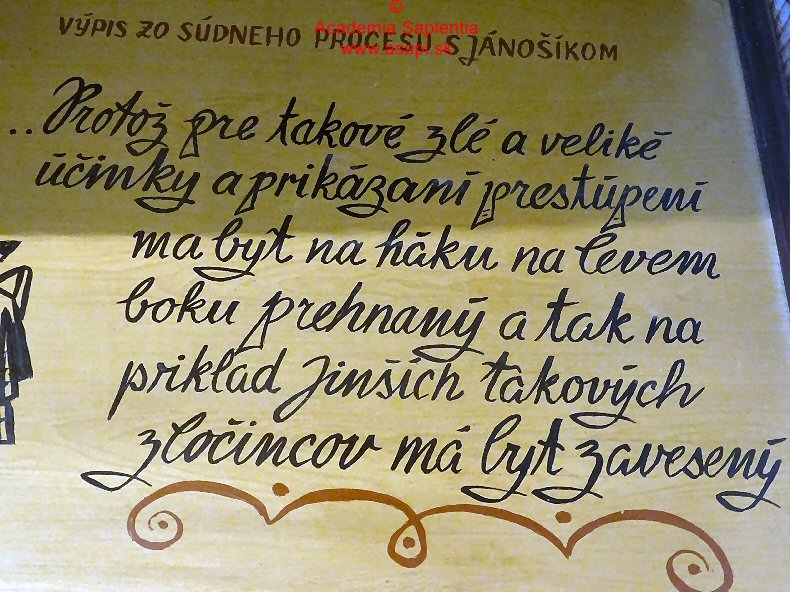 © 
Academia Sapientia
www.asapi.sk
VÝPIS ZO SÚDNEHO PROCESU S JÁNOŠÍKOM
..Protož pre takové zlé a veliké
účinky a prikázaní prestúpení
ma byt na háku na levem
boku prehnaný a tak na
priklad Jinších takových
zločincov má byt zavesený